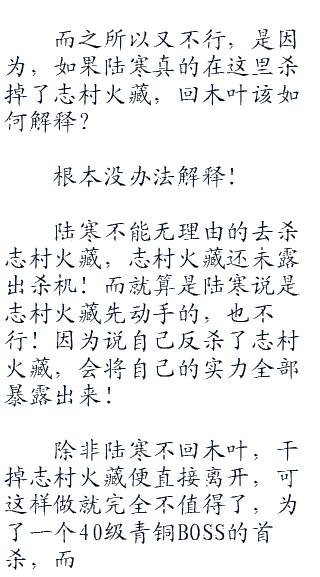 而之所以又不行，是因
为，如果陆寒真的在这里杀
掉了志村火藏，回木叶该如
何解释？
根本没办法解释！
陆寒不能无理由的去杀
志村火藏，志村火藏还未露
出杀机！而就算是陆寒说是
志村火藏先动手的，也不
行！因为说自己反杀了志村
火藏，会将自己的实力全部
暴露出来！
除非陆寒不回木叶，干
掉志村火藏便直接离开，可
这样做就完全不值得了，为
了一个40级青铜BOSS的首
杀，而